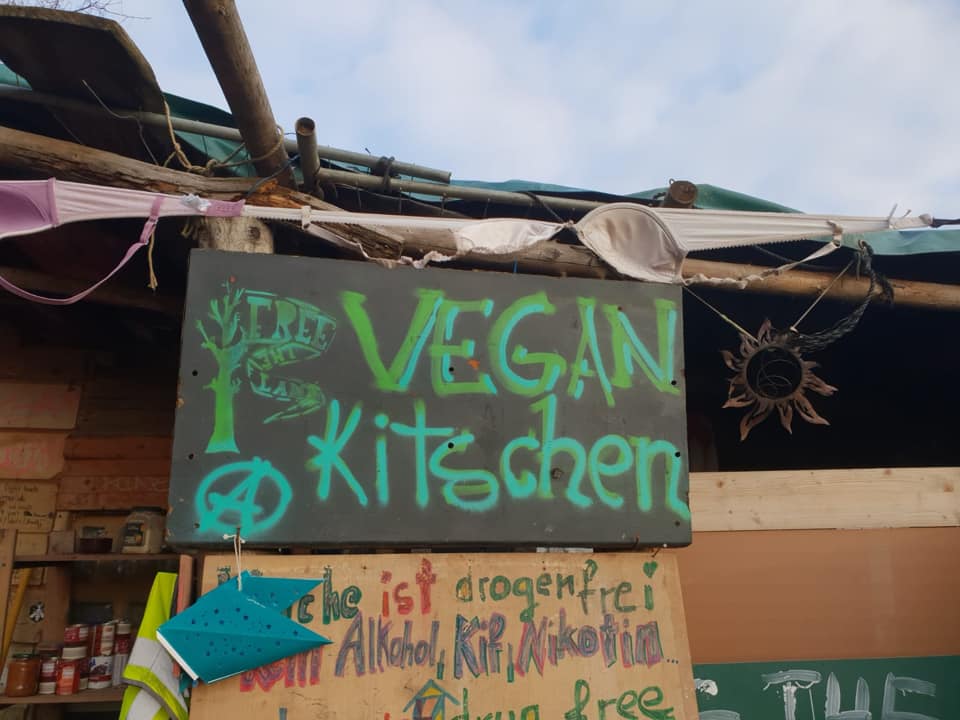 FREE
THE
LAND
VEGAN
Kitschen
A
che ist drogenfrei
Alkohol, Kif, Nikotin...
drug free
THE